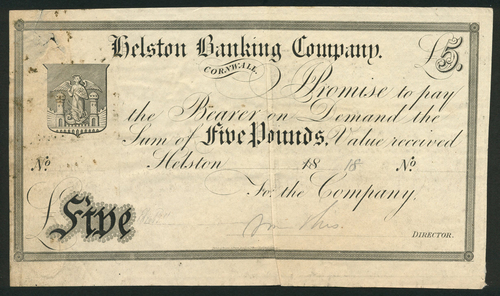 Helston Banking Company.
CORNWALL.
£5.
I Promise to pay
the Bearer on Demand the
Sum of Five Pounds, Value received
No Helston 18 18 No
For the Company.
£Five
DIRECTOR.